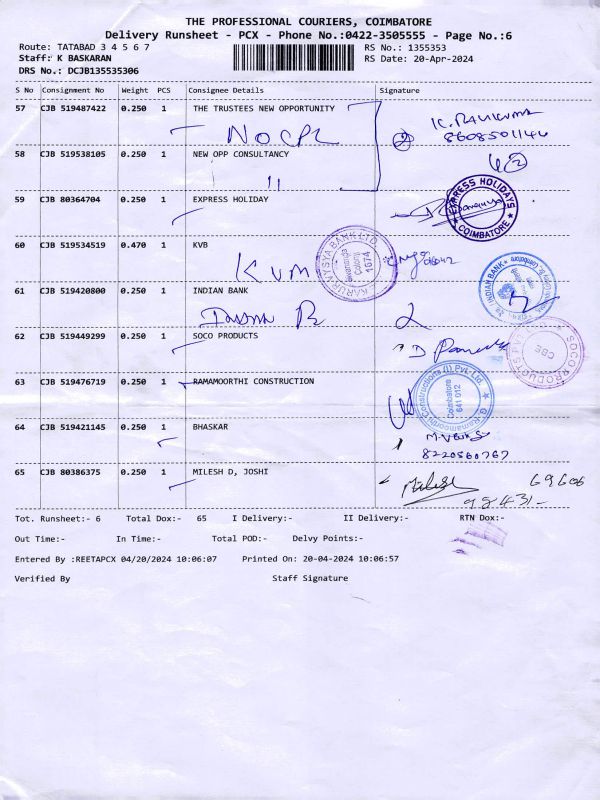 THE PROFESSIONAL COURIERS, COIMBATORE
Delivery Runsheet - PCX - Phone No.:0422-3505555 - Page No.:6
Route: TATABAD 3 4 5 6 7 RS No.: 1355353
Staff: K BASKARAN RS Date: 20-Apr-2024
DRS No.: DCJB135535306
S No Consignment No Weight PCS Consignee Details Signature
57 CJB 519487422 0.250 1 THE TRUSTEES NEW OPPORTUNITY
K. RAVIKUMAR
NOCPL 2 8608501144
58 CJB 519538105 0.250 1 NEW OPP CONSULTANCY
59 CJB 80364704 0.250 1 EXPRESS HOLIDAY
EXPRESS HOLIDAYS COIMBATORE
60 CJB 519534519 0.470 1 KVB
KARUR VYSYA BANK LTD. 1674
61 CJB 519420800 0.250 1 INDIAN BANK
INDIAN BANK
62 CJB 519449299 0.250 1 SOCO PRODUCTS
SOCO PRODUCTS CBE
63 CJB 519476719 0.250 1 RAMAMOORTHI CONSTRUCTION
G. Ramamoorthi Constructions (I) Pvt. Ltd. Coimbatore 641 012
64 CJB 519421145 0.250 1 BHASKAR
8220560767
65 CJB 80386375 0.250 1 MILESH D, JOSHI
Tot. Runsheet:- 6 Total Dox:- 65 I Delivery:- II Delivery:- RTN Dox:-
Out Time:- In Time:- Total POD:- Delvy Points:-
Entered By :REETAPCX 04/20/2024 10:06:07 Printed On: 20-04-2024 10:06:57
Verified By Staff Signature